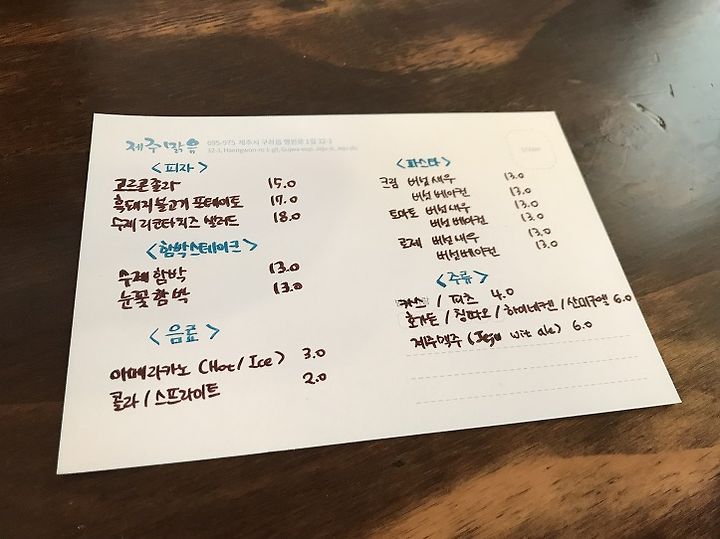 제주맑음
095-975 제주시 구좌읍 행원로 1길 32-1
32-1, Haengwon-ro 1-gil, Gujwa-eup, Jeju-si, Jeju-do
<피자>
고르곤졸라 15.0
흑돼지불고기 포테이토 17.0
수제 리코타치즈 샐러드 18.0
<함박스테이크>
수제함박 13.0
눈꽃함박 13.0
<음료>
아메리카노 (Hot / Ice) 3.0
콜라 / 스프라이트 2.0
<파스타>
크림 버섯새우 13.0
버섯베이컨 13.0
토마토 버섯새우 13.0
버섯베이컨 13.0
로제 버섯새우 13.0
버섯베이컨 13.0
<주류>
카스 / 피츠 4.0
호가든 / 칭따오 / 하이네켄 / 산미구엘 6.0
제주맥주 (Jeju wit ale) 6.0